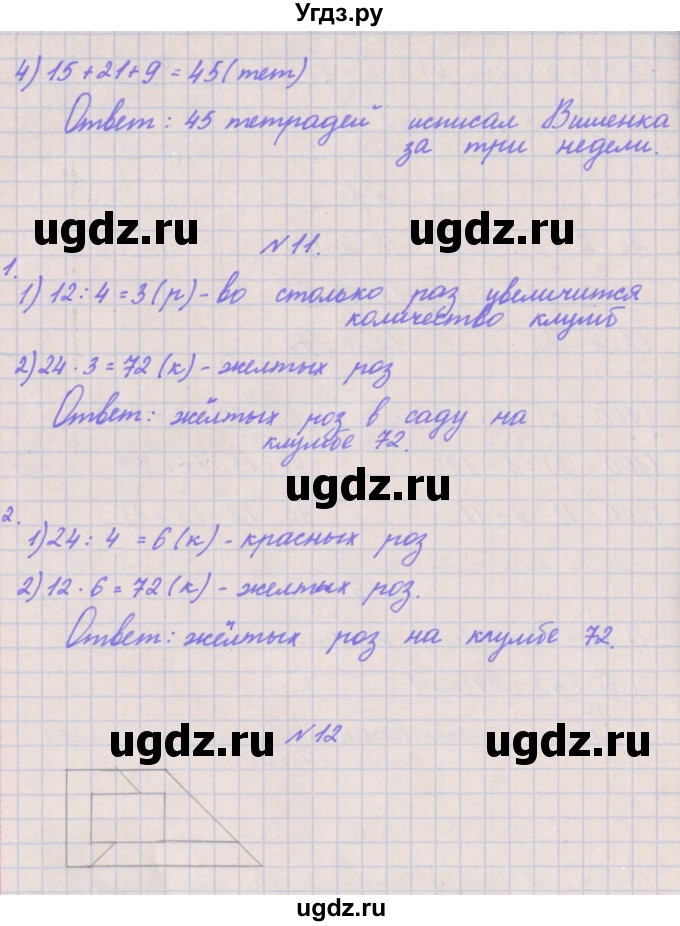 Угдз.ру
4) 15 + 21 + 9 = 45 (тет)
Ответ: 45 тетрадей исписал Вишенка
за три недели.
ugdz.ru
ugdz.ru
№ 11.
1.
1) 12 : 4 = 3 (р) - во столько раз увеличится
количество клумб
2) 24 · 3 = 72 (к) - желтых роз
Ответ: жёлтых роз в саду на
клумбе 72.
ugdz.ru
2.
1) 24 : 4 = 6 (к) - красных роз
2) 12 · 6 = 72 (к) - желтых роз.
Ответ: жёлтых роз на клумбе 72.
ugdz.ru
№ 12
ugdz.ru
ugdz.ru